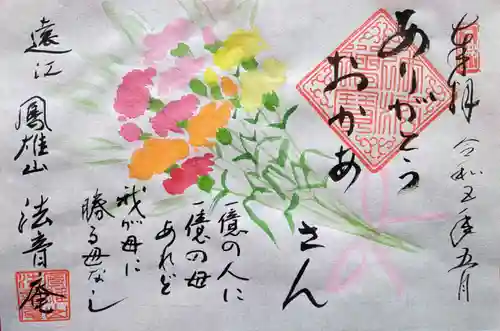 奉拝 令和五年五月
ありがとう
おかあ
さん
一億の人に
一億の母
あれど
我が母に
勝る母なし
遠江 鳳雄山 法音庵